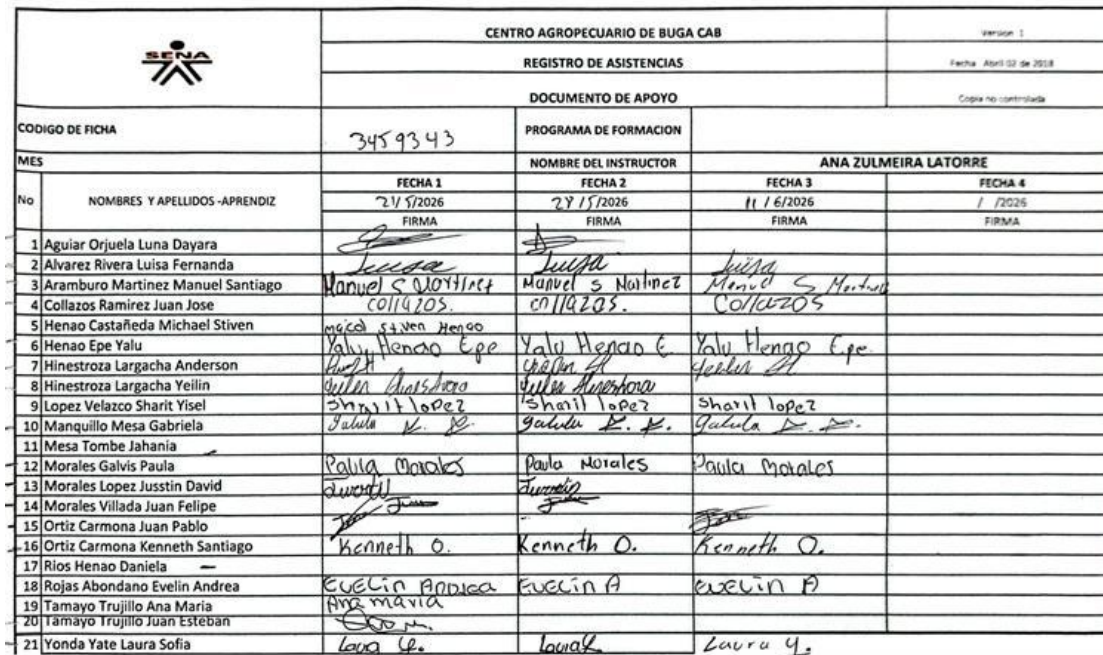 SENA
CENTRO AGROPECUARIO DE BUGA CAB
Version 1
REGISTRO DE ASISTENCIAS
Fecha Abril 02 de 2018
DOCUMENTO DE APOYO
Copia no controlada
CODIGO DE FICHA 3459343 PROGRAMA DE FORMACION
MES NOMBRE DEL INSTRUCTOR ANA ZULMEIRA LATORRE
No NOMBRES Y APELLIDOS -APRENDIZ FECHA 1 FECHA 2 FECHA 3 FECHA 4
21/5/2026 /5/2026 11/6/2026 / /2026
FIRMA FIRMA FIRMA FIRMA
1 Aguiar Orjuela Luna Dayara
2 Alvarez Rivera Luisa Fernanda Luisa Luisa Luisa
3 Aramburo Martinez Manuel Santiago Manuel S Martinez Manuel S Martinez Manuel S Martinez
4 Collazos Ramirez Juan Jose collazos. collazos. Collazos
5 Henao Castañeda Michael Stiven maicol stiven Henao
6 Henao Epe Yalu Yalu Henao Epe Yalu Henao E Yalu Henao Epe
7 Hinestroza Largacha Anderson
8 Hinestroza Largacha Yeilin
9 Lopez Velazco Sharit Yisel Sharit lopez Sharit lopez Sharit lopez
10 Manquillo Mesa Gabriela
11 Mesa Tombe Jahania
12 Morales Galvis Paula Paula Morales Paula Morales Paula Morales
13 Morales Lopez Jusstin David
14 Morales Villada Juan Felipe
15 Ortiz Carmona Juan Pablo
16 Ortiz Carmona Kenneth Santiago Kenneth O. Kenneth O. Kenneth O.
17 Rios Henao Daniela
18 Rojas Abondano Evelin Andrea EVELin Andrea EVELin A EVELin A
19 Tamayo Trujillo Ana Maria Ana maria
20 Tamayo Trujillo Juan Esteban
21 Yonda Yate Laura Sofia Laura Y. Laura Y. Laura Y.